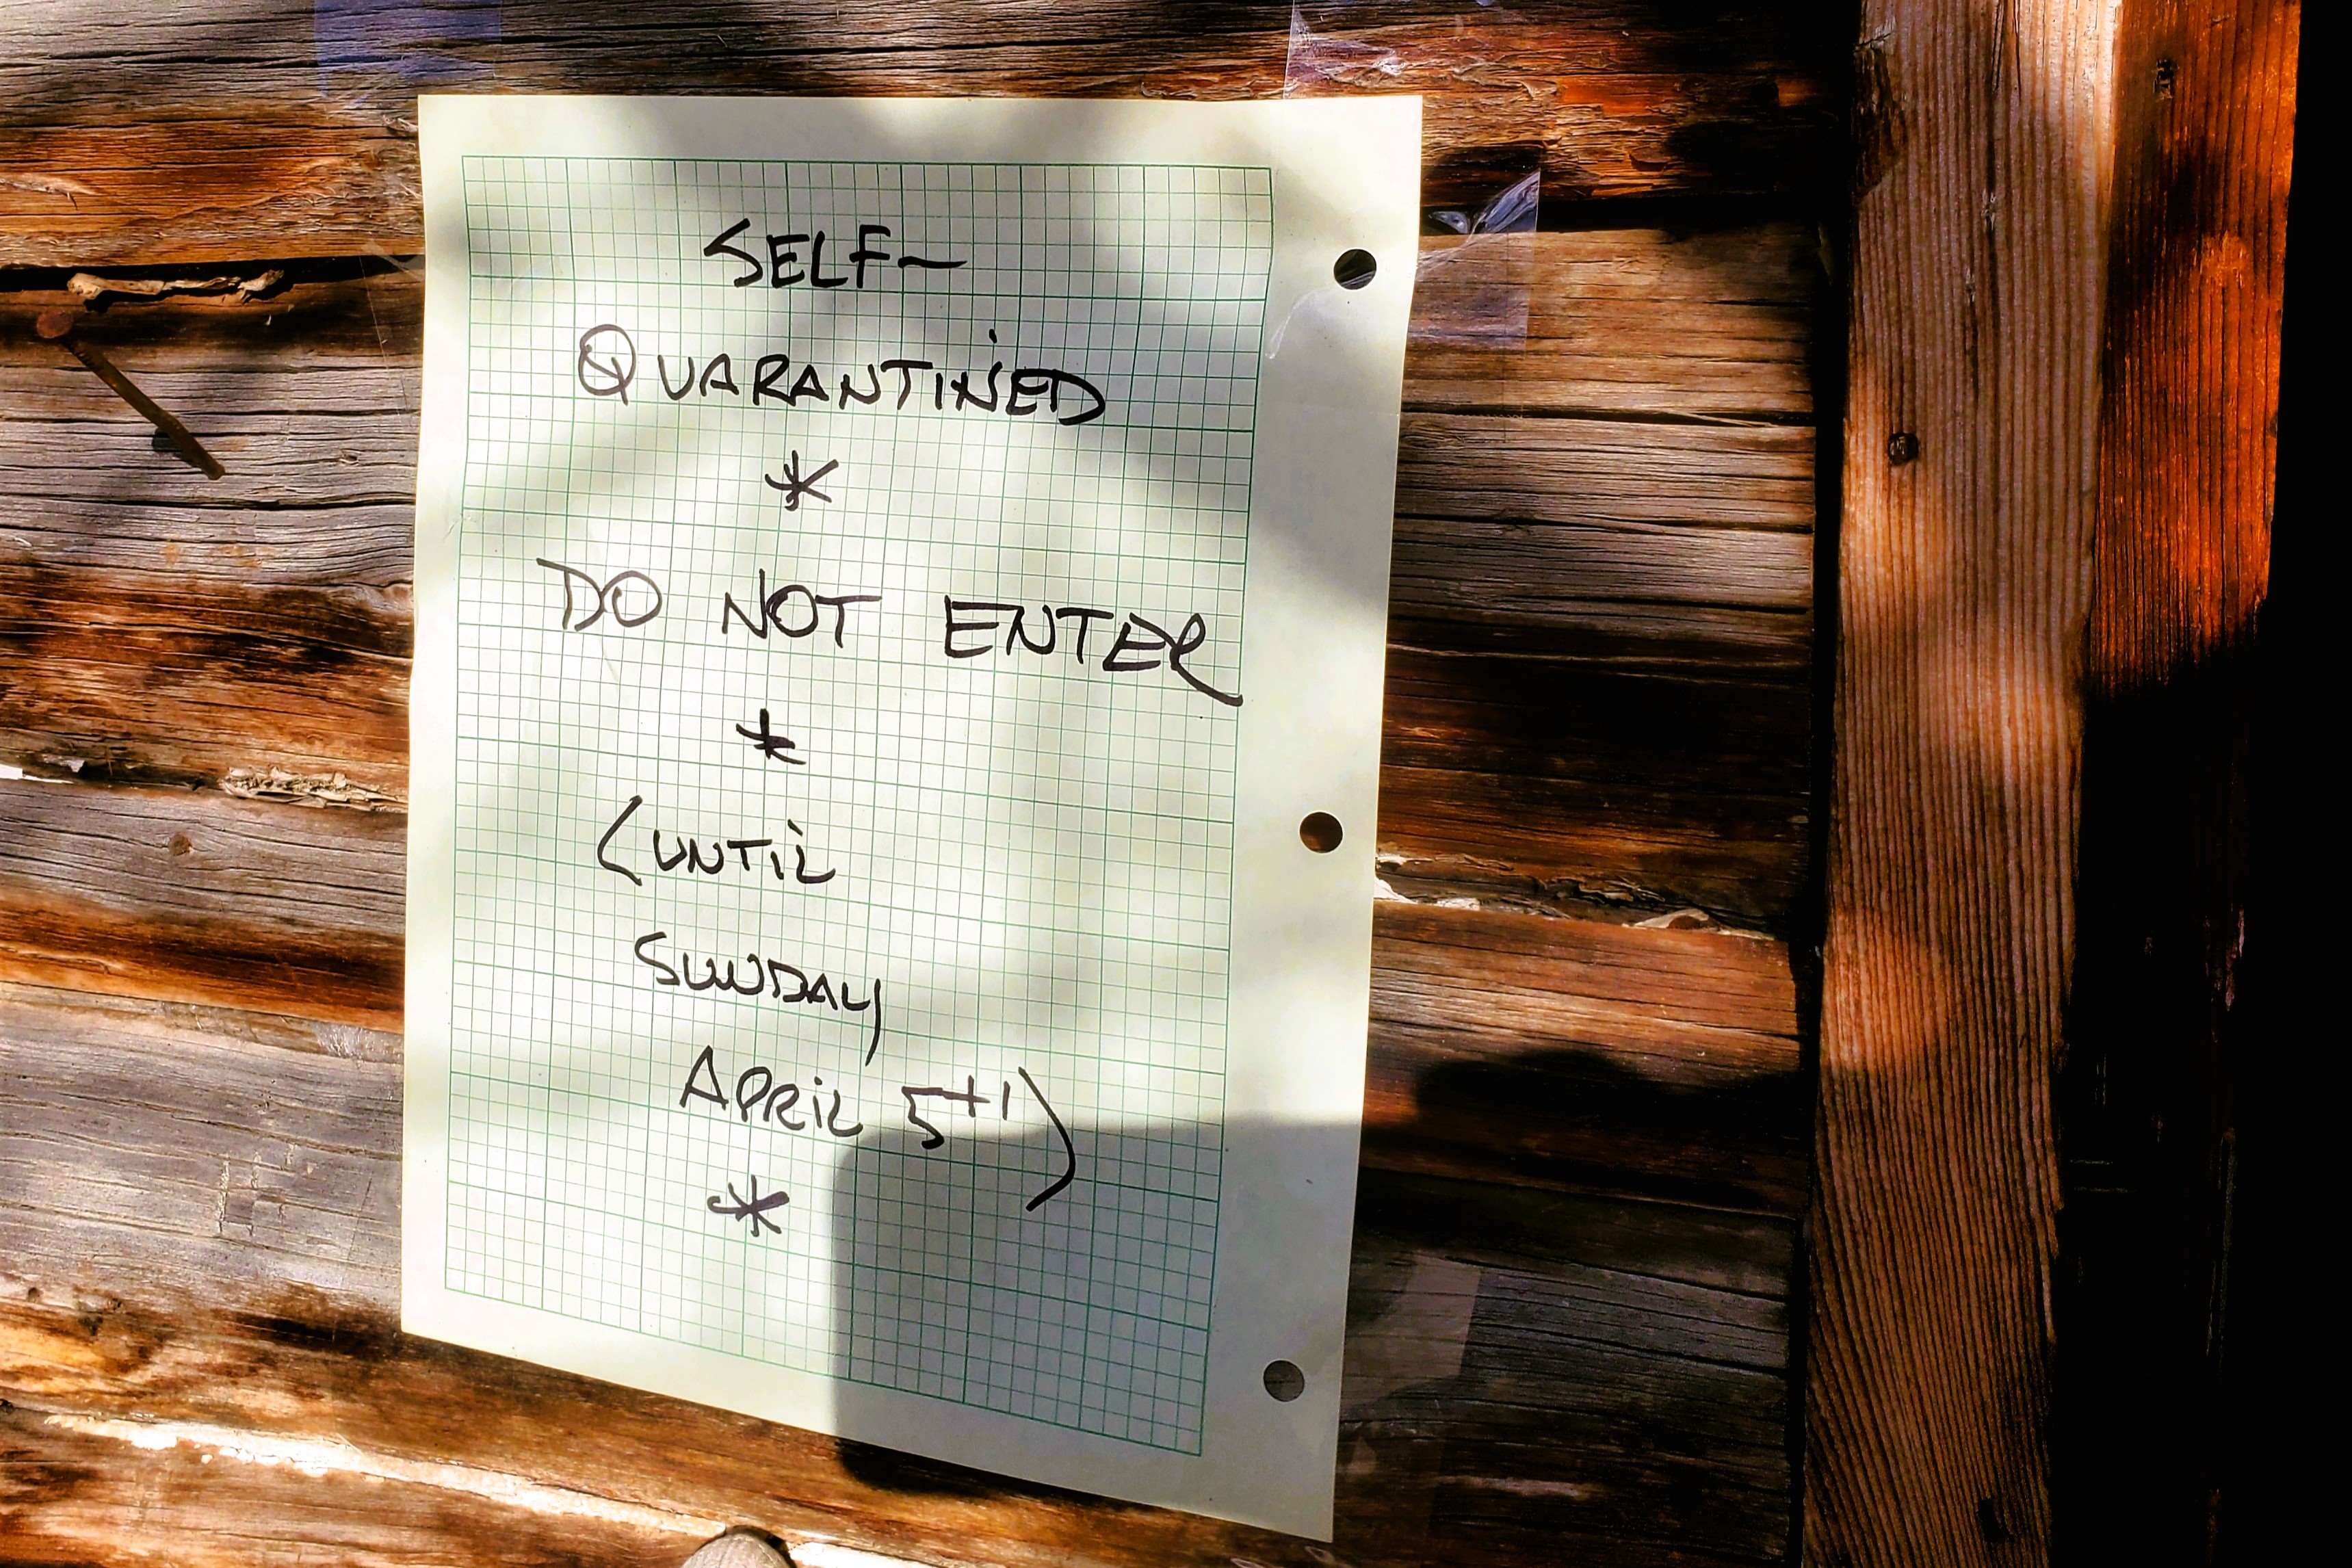 SELF-
QUARANTINED
*
DO NOT ENTER
*
(UNTIL
SUNDAY
APRIL 5th)
*